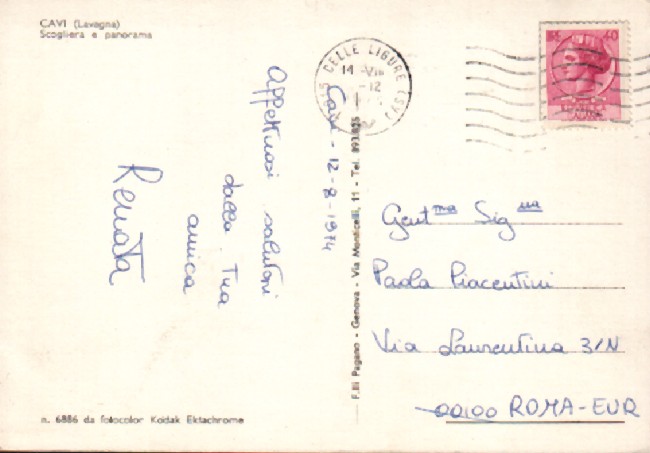 CAVI (Lavagna)
Scogliera e panorama
CELLE LIGURE (SV)
14 - VIII
- 12
Cavi - 12-8-1974
Affettuosi saluti
dalla tua
amica
Renata
F.lli Pagano - Genova - Via Monticelli, 11 - Tel. 893.825
Gent.ma Sig.na
Paola Piacentini
Via Laurentina 3/N
00100 ROMA-EUR
n. 6886 da fotocolor Kodak Ektachrome